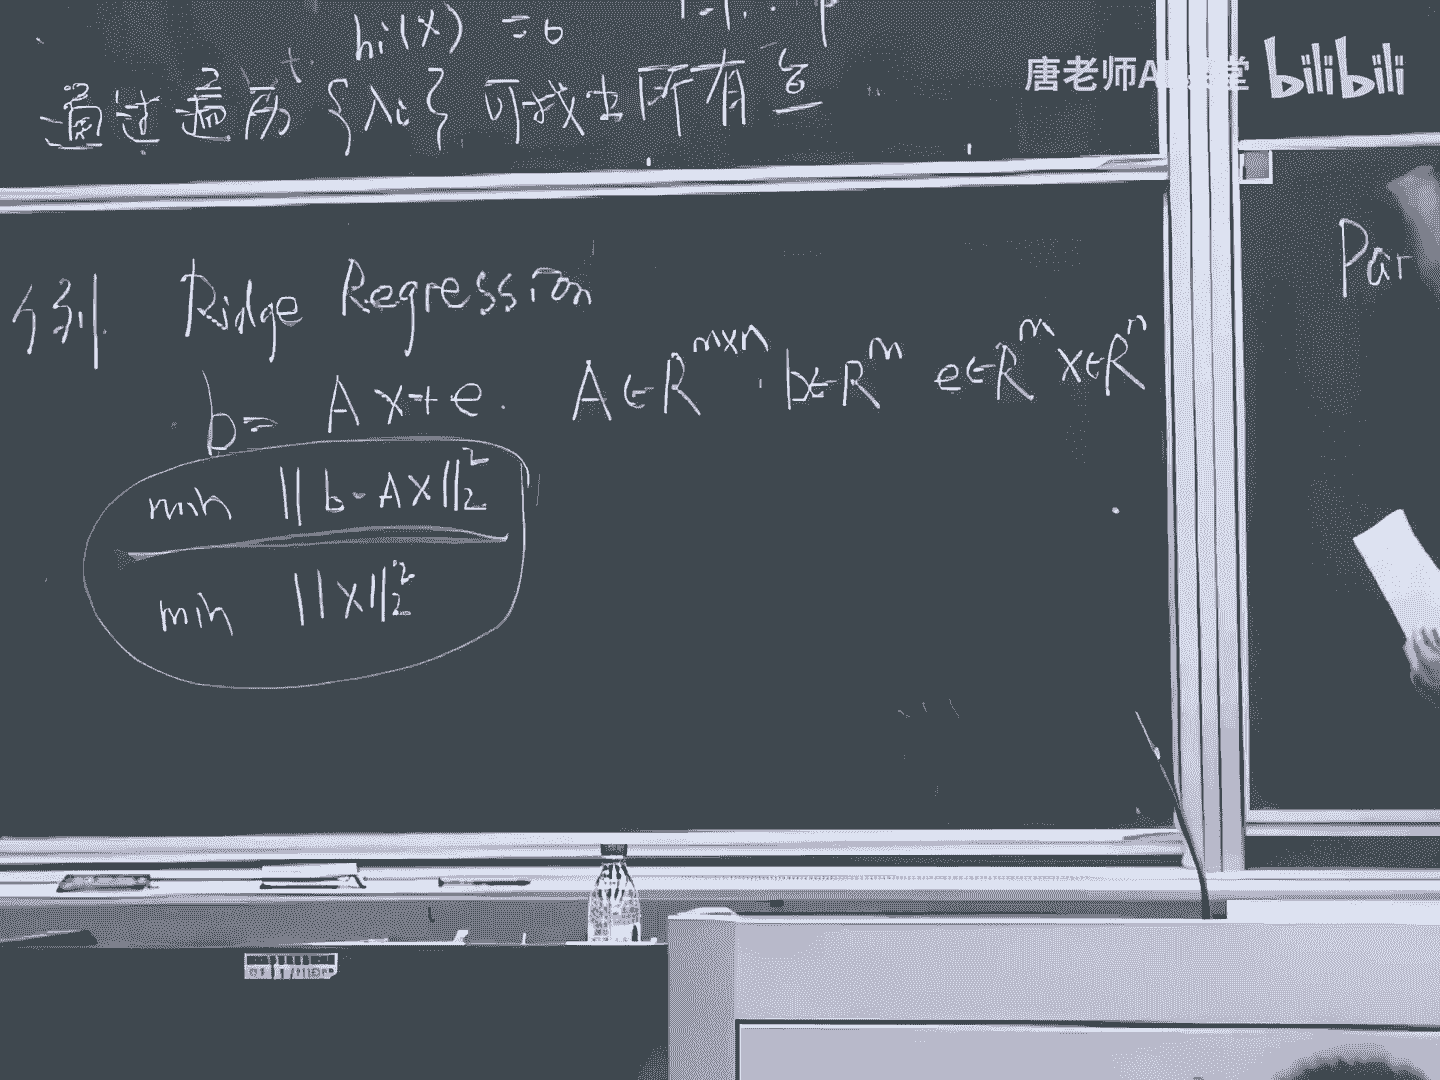 hi(x) = 0
通过遍历 {λi} 可找出所有
唐老师A 课堂 bilibili
例. Ridge Regression
b = Ax+e. A∈R^{m×n}. b∈R^m e∈R^m x∈R^n
min ||b-Ax||_2^2
min ||x||_2^2
Par